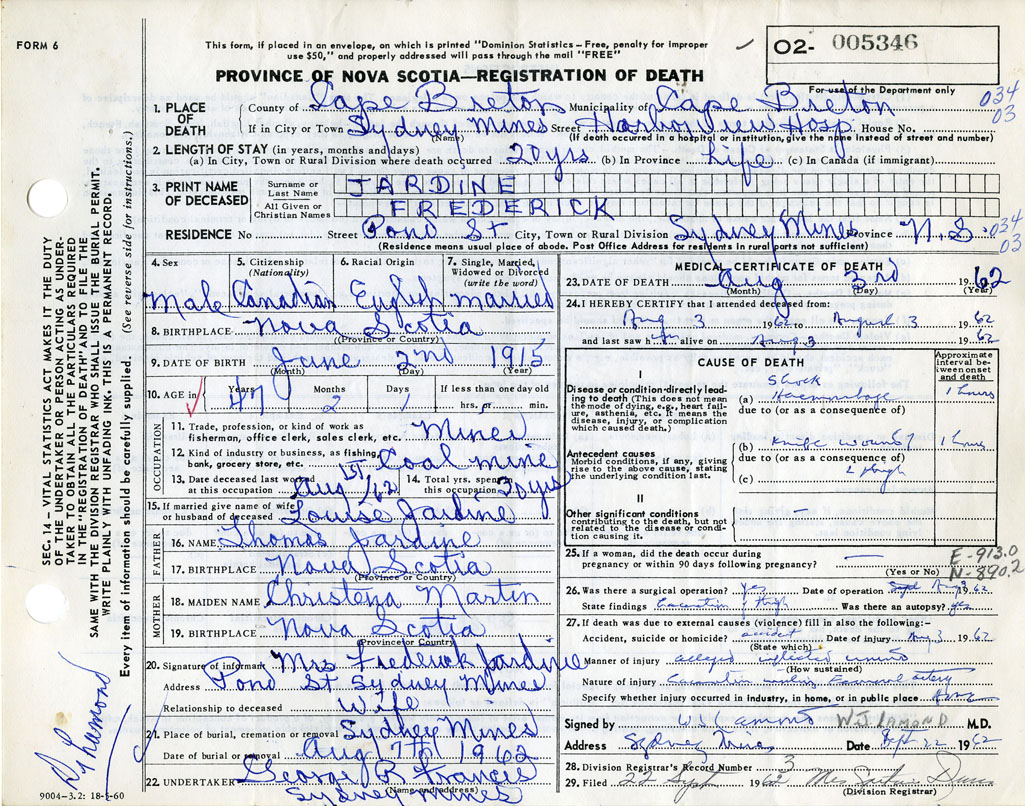 FORM 6
This form, if placed in an envelope, on which is printed "Dominion Statistics – Free, penalty for improper
use $50," and properly addressed will pass through the mail "FREE"
PROVINCE OF NOVA SCOTIA—REGISTRATION OF DEATH
02- 005346
For use of the Department only
034
03
1. PLACE OF DEATH County of Cape Breton Municipality of Cape Breton
If in City or Town Sydney Mines Street Harbor View Hosp. House No.
(Name) (If death occurred in a hospital or institution, give the name instead of street and number)
2. LENGTH OF STAY (in years, months and days)
(a) In City, Town or Rural Division where death occurred 20 yrs (b) In Province Life (c) In Canada (if immigrant)
3. PRINT NAME OF DECEASED Surname or Last Name JARDINE
All Given or Christian Names FREDERICK
RESIDENCE No Street Pond St City, Town or Rural Division Sydney Mines Province N.S.
034
03
(Residence means usual place of abode. Post Office Address for residents in rural parts not sufficient)
4. Sex Male
5. Citizenship (Nationality) Canadian
6. Racial Origin English
7. Single, Married, Widowed or Divorced (write the word) Married
8. BIRTHPLACE Nova Scotia
(Province or Country)
9. DATE OF BIRTH June 2nd 1915
(Month) (Day) (Year)
10. AGE in Years 47 Months 2 Days 1 If less than one day old hrs. or min.
OCCUPATION
11. Trade, profession, or kind of work as fisherman, office clerk, sales clerk, etc. Miner
12. Kind of industry or business, as fishing, bank, grocery store, etc. Coal mine
13. Date deceased last worked at this occupation Aug 1st/62 14. Total yrs. spent in this occupation 30 yrs
15. If married give name of wife or husband of deceased Louise Jardine
FATHER
16. NAME Thomas Jardine
17. BIRTHPLACE Nova Scotia
(Province or Country)
MOTHER
18. MAIDEN NAME Christena Martin
19. BIRTHPLACE Nova Scotia
(Province or Country)
20. Signature of informant Mrs Frederick Jardine
Address Pond St Sydney Mines
Relationship to deceased wife
21. Place of burial, cremation or removal Sydney Mines
Date of burial or removal Aug 7th 1962
22. UNDERTAKER George R Francis
(Name and address)
Sydney Mines
9004-3.2: 18-5-60
SEC. 14 – VITAL STATISTICS ACT MAKES IT THE DUTY
OF THE UNDERTAKER OR PERSON ACTING AS UNDER-
TAKER TO OBTAIN ALL THE PARTICULARS REQUIRED
IN THE "REGISTRATION OF DEATH" AND TO FILE THE
SAME WITH THE DIVISION REGISTRAR WHO SHALL ISSUE THE BURIAL PERMIT.
WRITE PLAINLY WITH UNFADING INK. THIS IS A PERMANENT RECORD.
Every item of information should be carefully supplied. (See reverse side for instructions.)
MEDICAL CERTIFICATE OF DEATH
23. DATE OF DEATH Aug 3rd 1962
(Month) (Day) (Year)
24. I HEREBY CERTIFY that I attended deceased from:
Aug 3 1962 to August 3 1962
and last saw him alive on Aug 3 1962
CAUSE OF DEATH
Approximate interval between onset and death
I
Disease or condition directly leading to death (This does not mean the mode of dying, e.g., heart failure, asthenia, etc. It means the disease, injury, or complication which caused death)
(a) Shock Haemorrhage 1 hours
due to (or as a consequence of)
Antecedent causes
Morbid conditions, if any, giving rise to the above cause, stating the underlying condition last.
(b) Knife wound 1 hours
due to (or as a consequence of)
(c) L thigh
II
Other significant conditions contributing to the death, but not related to the disease or condition causing it. –
25. If a woman, did the death occur during pregnancy or within 90 days following pregnancy? —
(Yes or No)
E-913.0
N-890.2
26. Was there a surgical operation? yes Date of operation Aug 3 1962
State findings thigh Was there an autopsy? yes
27. If death was due to external causes (violence) fill in also the following:
Accident, suicide or homicide? accident Date of injury Aug 3, 1962
(State which)
Manner of injury alleged inflicted wound
(How sustained)
Nature of injury femoral artery
Specify whether injury occurred in industry, in home, or in public place Home
Signed by W J Lamond W.J. LAMOND M.D.
Address Sydney Mines Date Sept 22 1962
28. Division Registrar's Record Number 3
29. Filed 22 Sept 1962 Mrs
(Division Registrar)
Dr Lamond